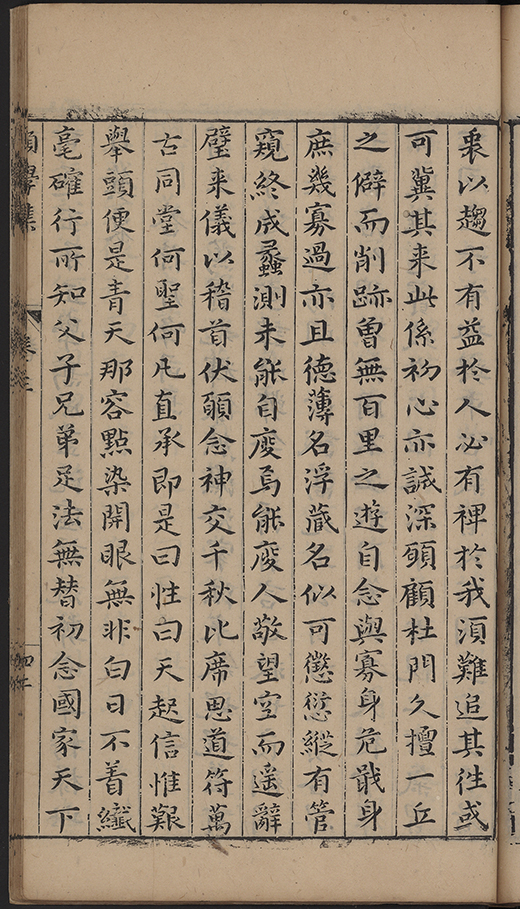 裘以趨不有益於人必有裨於我須難追其徃或
可冀其来此係初心亦誠深頋顧杜門久擅一丘
之僻而削跡曽無百里之遊自念與寡身危戢身
庶幾寡過亦且德薄名浮蔵名似可懲愆縱有管
窺終成蠡測未能自度焉能度人敬望空而遥辭
璧来儀以稽首伏願念神交千秋比席思道符萬
古同堂何聖何凡直承即是曰性曰天起信惟艱
舉頭便是青天那容點染開眼無非白日不着纖
毫確行所知父子兄弟足法無替初念國家天下
願學集
卷之三